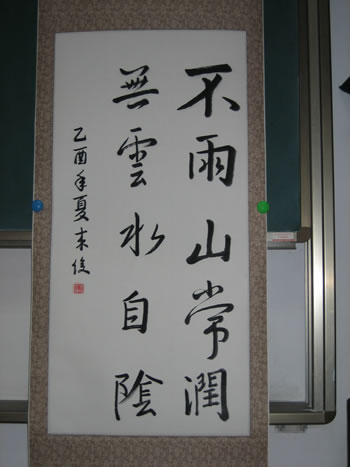 不雨山常潤
無雲水自陰
乙酉年夏末俊